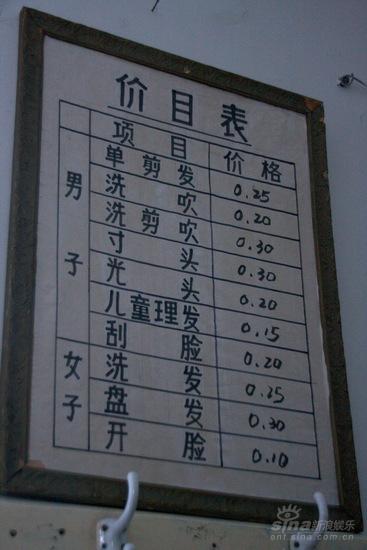 价目表
项目 价格
男子
单剪发 0.25
洗吹 0.20
洗剪吹 0.30
寸头 0.30
光头 0.20
儿童理发 0.15
刮脸 0.20
女子
洗发 0.25
盘发 0.30
开脸 0.10
sina新浪娱乐
ent.sina.com.cn